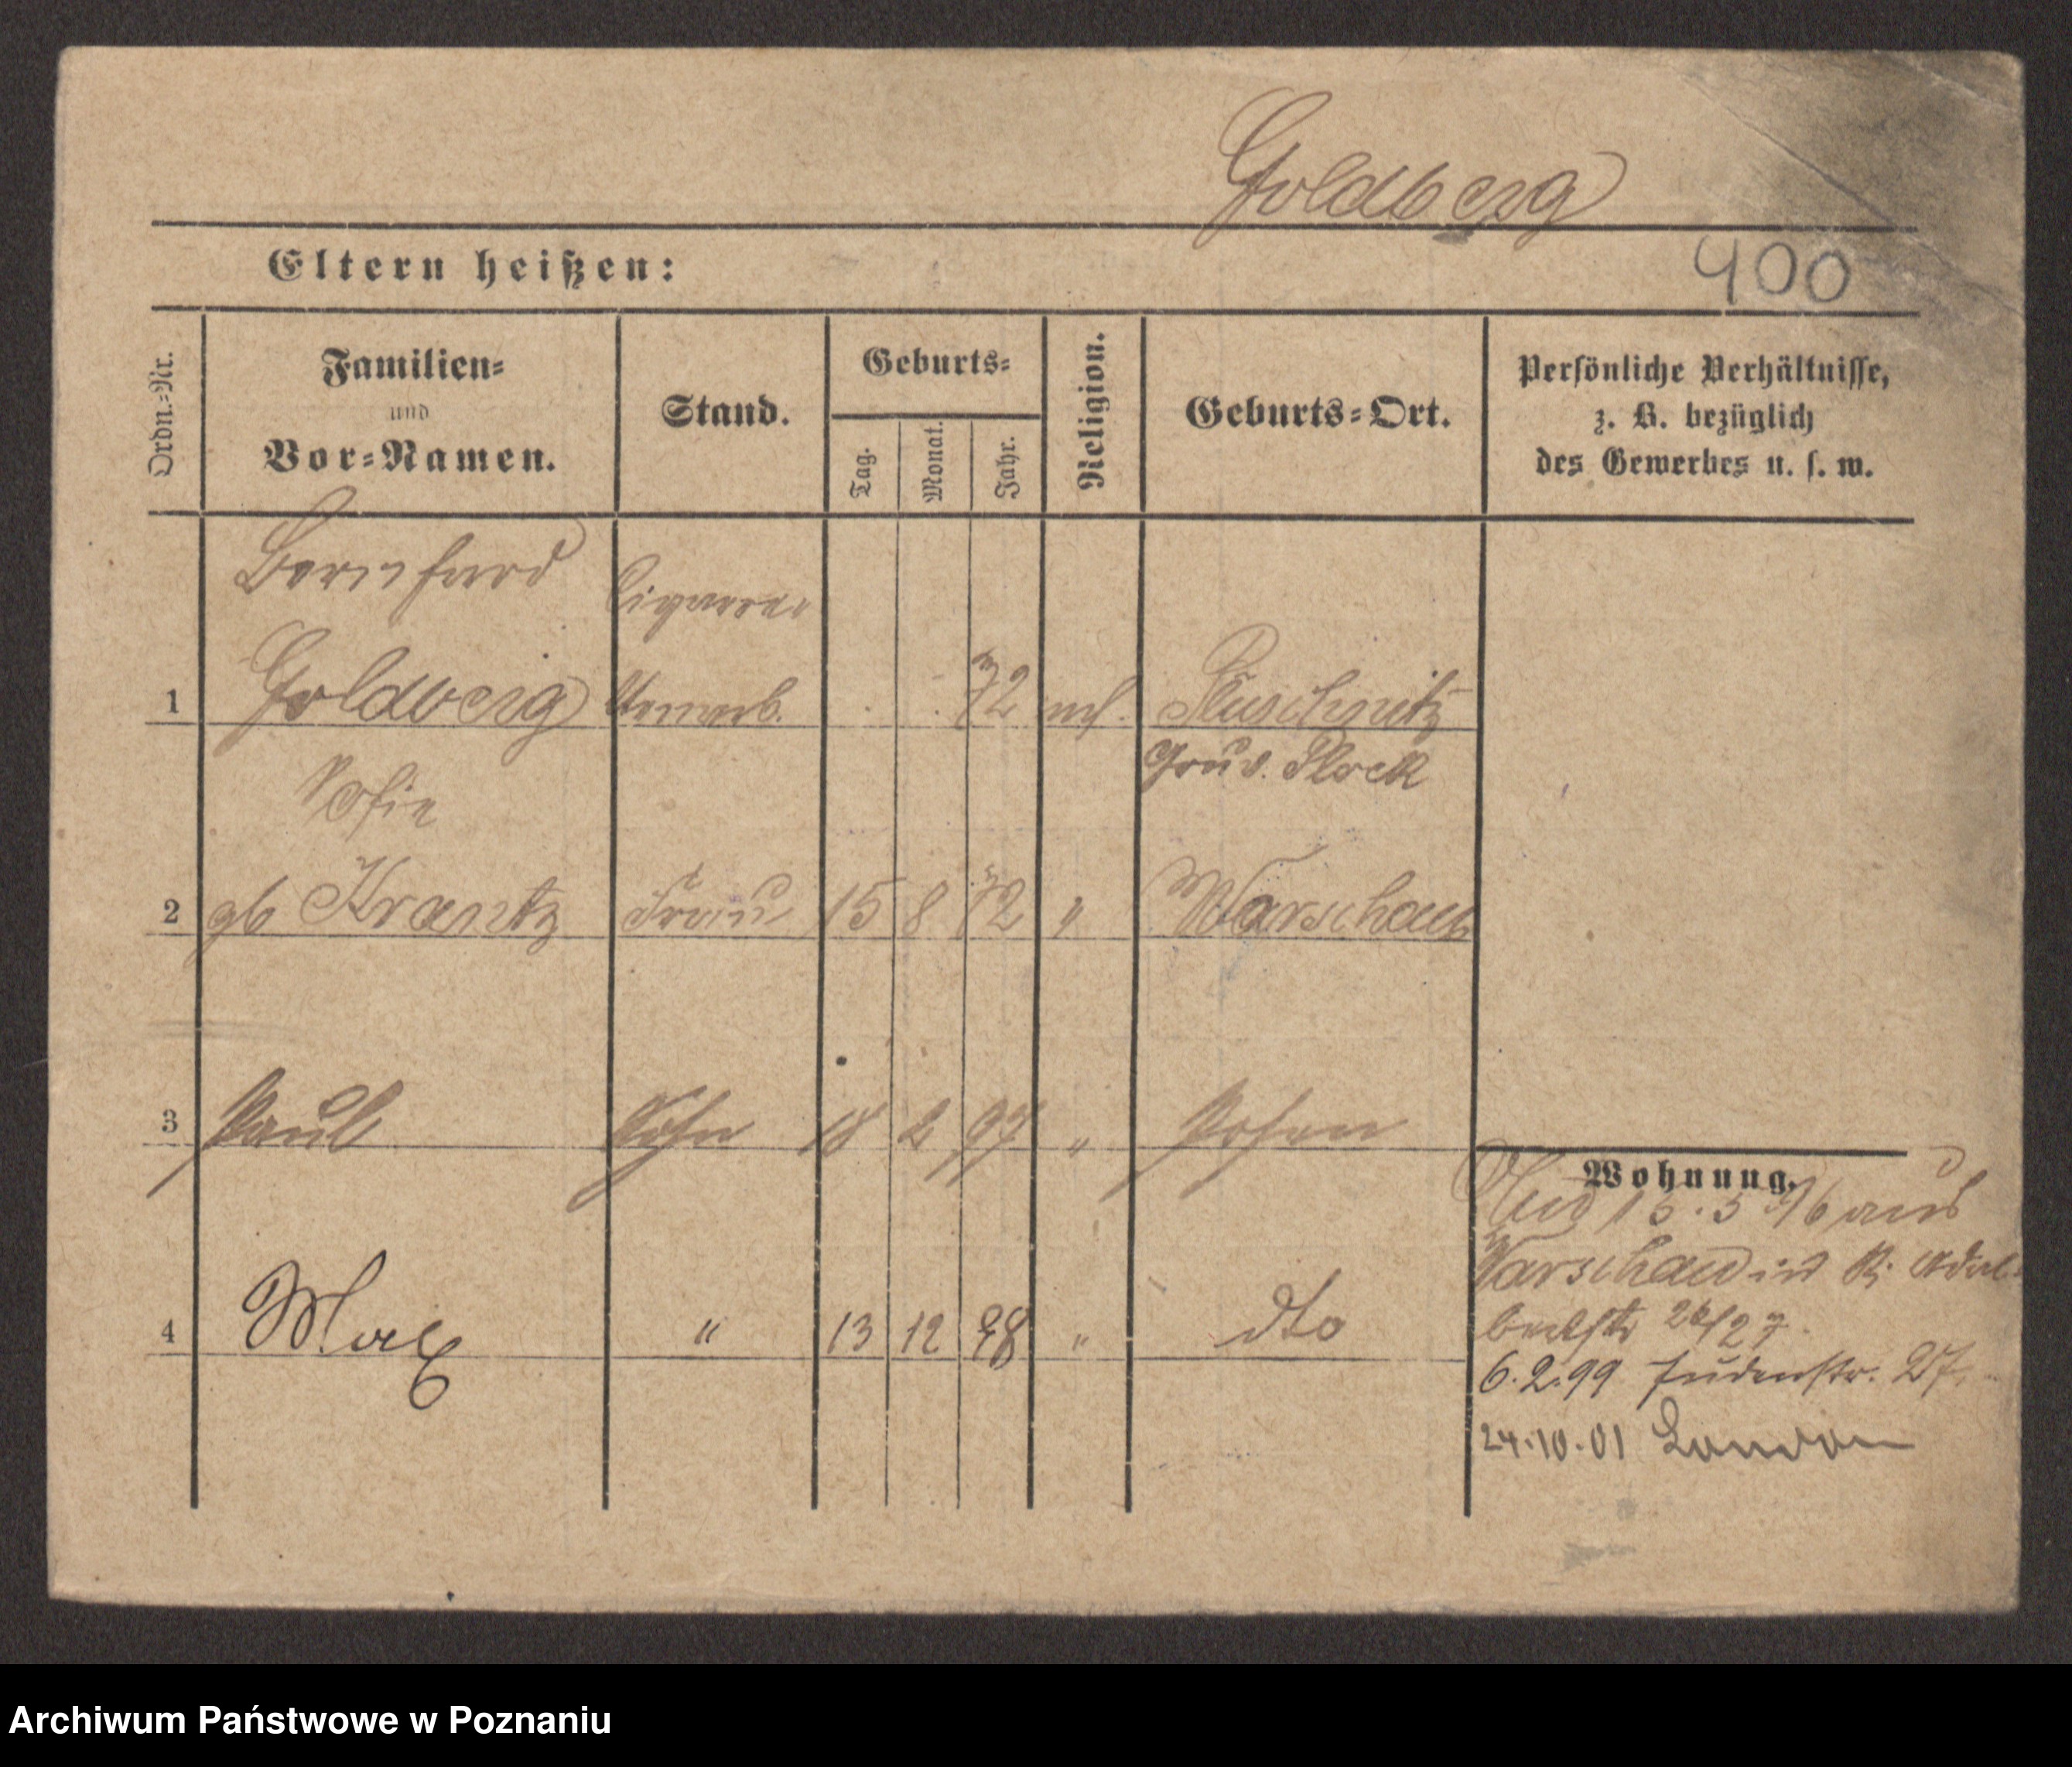 Goldberg
Eltern heißen:
400
Ordn.-Nr.
Familien-
und
Vor-Namen.
Stand.
Geburts-
Tag.
Monat.
Jahr.
Religion.
Geburts-Ort.
Persönliche Verhältnisse,
z. B. bezüglich
des Gewerbes u. s. w.
Bernhard
Cigarren
1 Goldberg 72
Gouv. Plock
Sofie
2 gb Krantz Frau 15 8 72 " Warschau
3 Paul Sohn 18 2 97 " Posen
Wohnung.
15.5 96 aus
Warschau
26/27
4 Max " 13 12 98 " dto
6.2.99 Judenstr. 27.
24.10.01 London
Archiwum Państwowe w Poznaniu